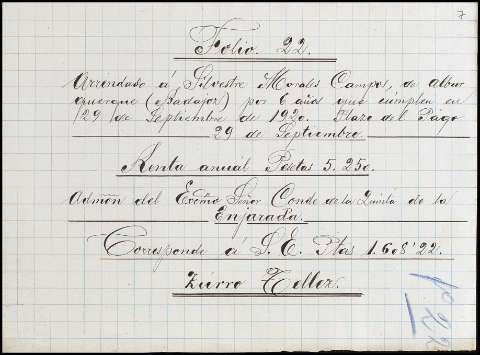 7
Folio. 22.
Arrendado á Silvestre Morales Campos, de Albur
querque (Badajoz) por 6 años que cumplen en
29 de Septiembre de 1920. Plazo del Pago
29 de Septiembre
Renta anual Pesetas 5.250.
Admón del Excmo Señor Conde de la Quinta de la
Enjarada.
Corresponde á S. E. Ptas 1.608'22.
Zurro Tellez.